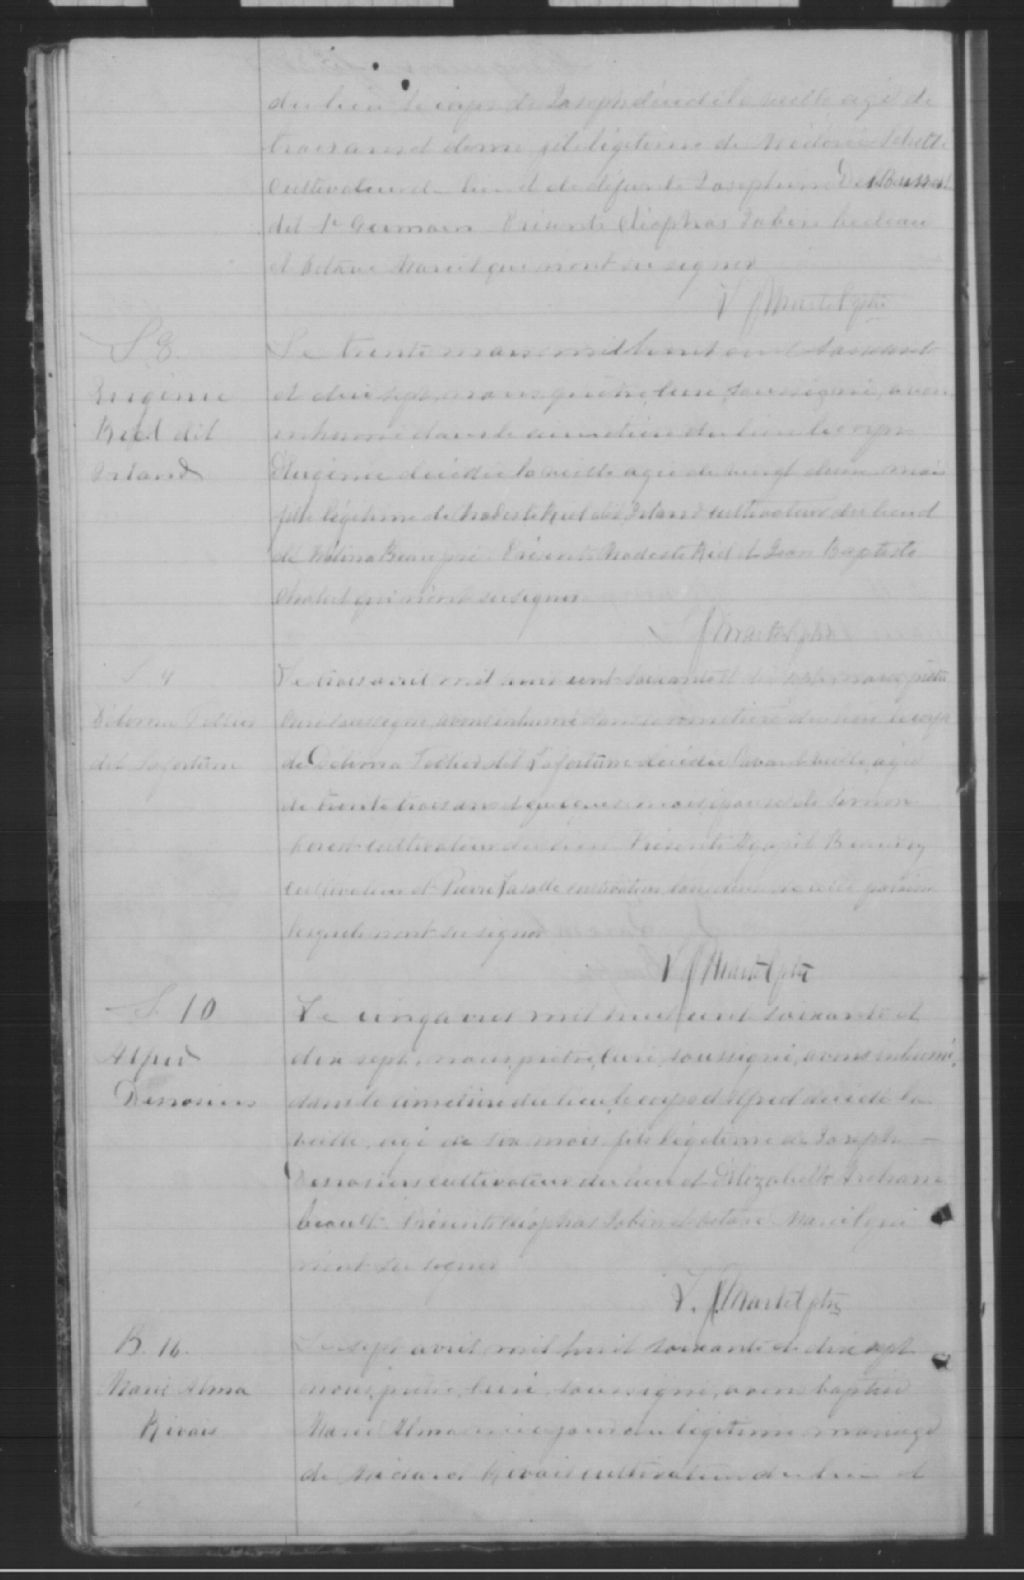 du lieu le corps de Joseph décédé la veille agé de
trois ans et demi fils légitime de
Cultivateur du lieu et de défunte Josephine
dit St Germain Présents Cléophas Jobin bedeau
et Octave Marcil qui n'ont su signer
V. J. Martel ptre
S 8
Eugénie
Riel dit
Irland
Le trente mars mil huit cent soixante
et dix sept, nous, prêtre Curé, soussigné, avons
inhumé dans le cimetière du lieu le corps
d'Eugénie décédée la veille agée de vingt deux mois
fille légitime de Modeste Riel dit Irland cultivateur du lieu et
de Mélina Beaupré. Présents Modeste Riel et Jean Baptiste
qui n'ont su signer
V. J. Martel ptre
S 9
Tellier
dit Lafortune
Le trois avril mil huit cent soixante et dix sept, nous, prêtre
Curé soussigné, avons inhumé dans le cimetière du lieu le corps
de Tellier dit Lafortune décédée l'avant veille, agée
de trente trois ans et quelques mois, épouse de Simon
cultivateur du lieu. Présents
cultivateur et Pierre Lasalle cultivateur tous deux de cette paroisse
lesquels n'ont su signer
V. J. Martel ptre
S. 10
Alfred
Desrosiers
Le cinq avril mil huit cent soixante et
dix sept, nous, prêtre, Curé, soussigné, avons inhumé,
dans le cimetière du lieu, le corps d'Alfred décédé la
veille, agé de six mois, fils légitime de Joseph
Desrosiers cultivateur du lieu et d'Elizabeth Archam
beault. Présents Cléophas Jobin et Octave Marcil qui
n'ont su signer
V. J. Martel ptre
B. 16.
Marie Alma
Rivais
Le sept avril mil huit soixante et dix sept
nous, prêtre, Curé, soussigné, avons baptisé
Marie Alma née ce jour du légitime mariage
de Rivais cultivateur du lieu et